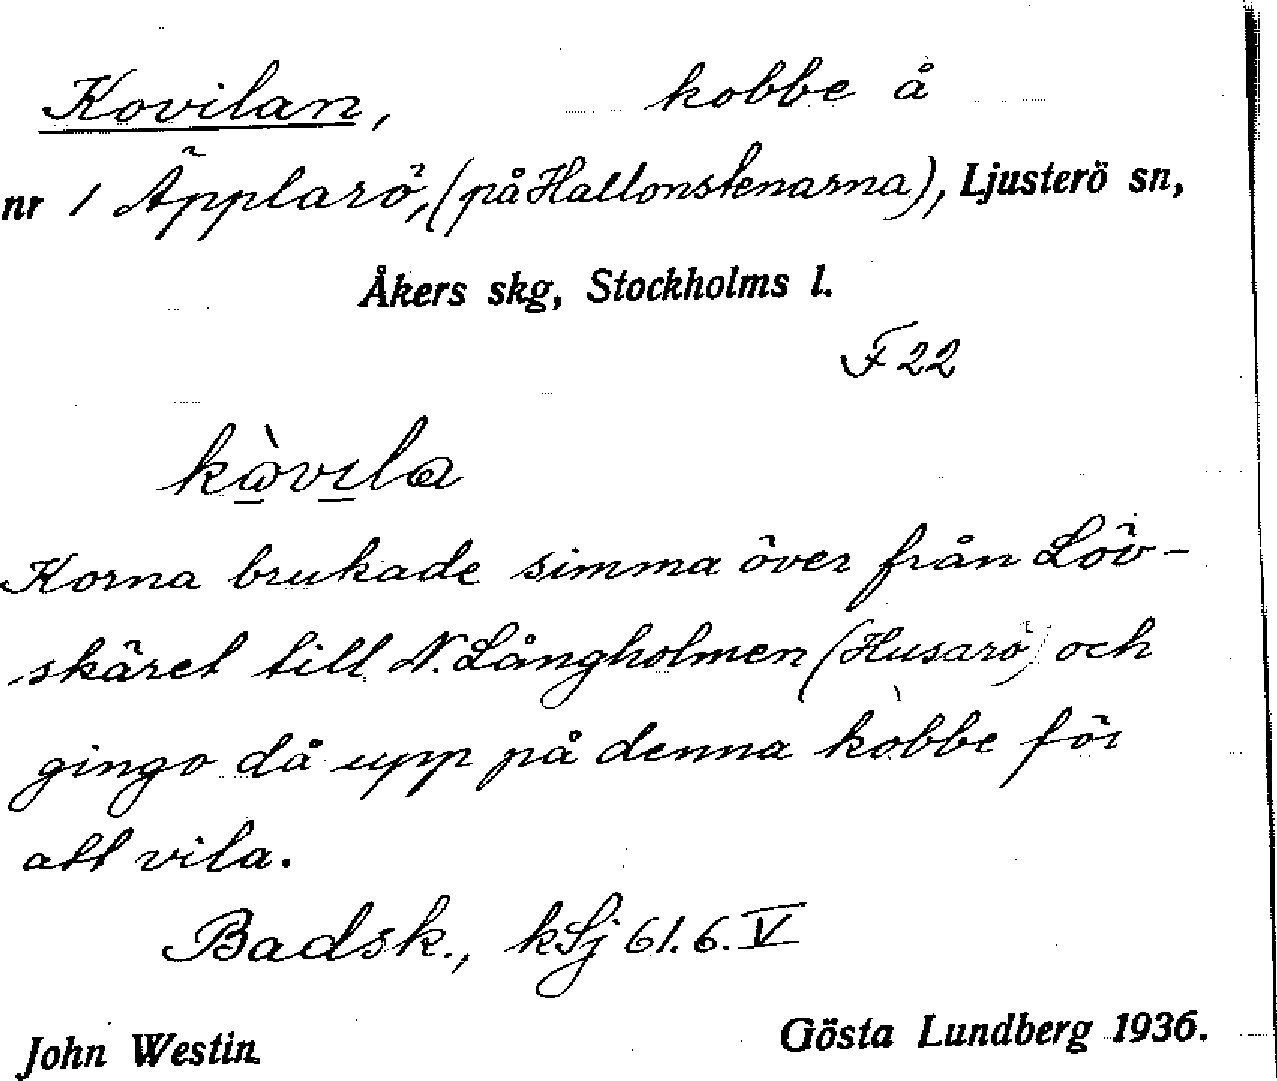 Kovilan, kobbe å
nr 1 Äpplarö, (på Hallonstenarna), Ljusterö sn,
Åkers skg, Stockholms l.
F 22
kὼvıla
Korna brukade simma över från Löv-
skäret till N. Långholmen (Husarö) och
gingo då upp på denna kobbe för
att vila.
Badsk., kSj 61.6.V
John Westin Gösta Lundberg 1936.